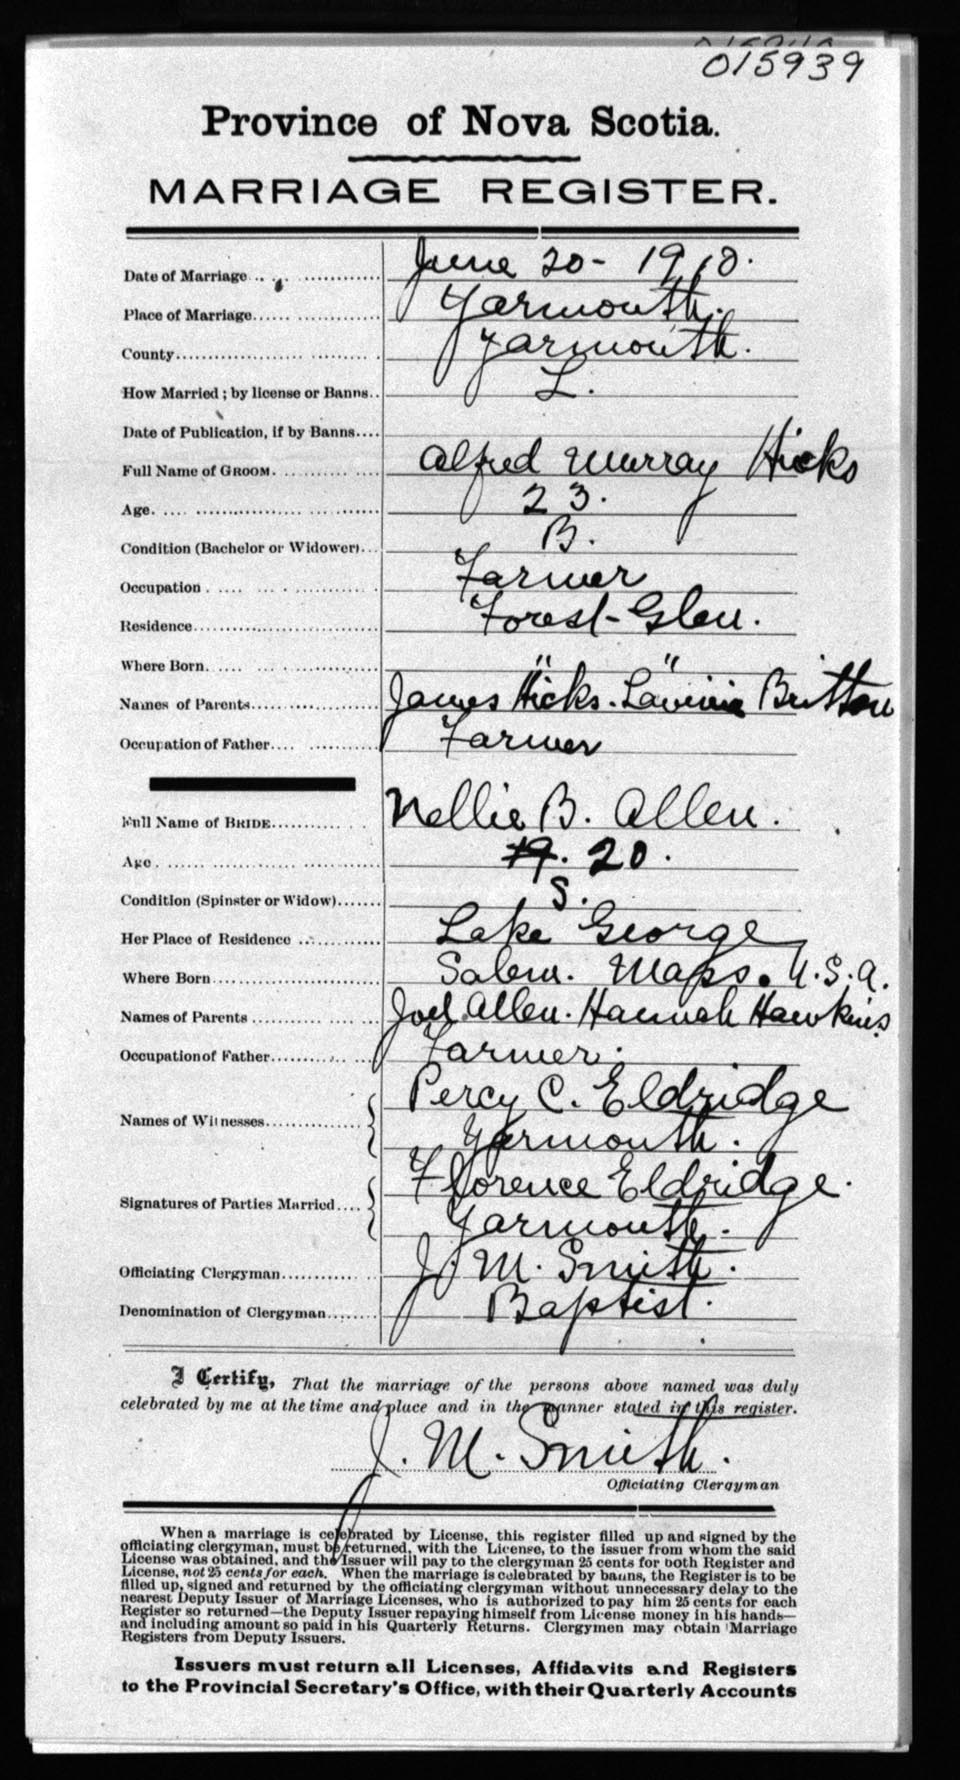 015939
Province of Nova Scotia.
MARRIAGE REGISTER.
Date of Marriage June 20 - 1910.
Place of Marriage Yarmouth.
County Yarmouth.
How Married; by license or Banns L.
Date of Publication, if by Banns
Full Name of GROOM. Alfred Murray Hicks
Age. 23.
Condition (Bachelor or Widower) B.
Occupation Farmer
Residence Forest-Glen.
Where Born. " "
Names of Parents James Hicks. Lavinia Britton
Occupation of Father Farmer
Full Name of BRIDE Nellie B. Allen.
Age 19. 20.
Condition (Spinster or Widow) S.
Her Place of Residence Lake George
Where Born Salem. Mass. U.S.A.
Names of Parents Joel Allen. Hannah Hawkins
Occupation of Father Farmer.
Percy C. Eldridge
Names of Witnesses
Yarmouth.
Florence Eldridge.
Signatures of Parties Married
Yarmouth.
Officiating Clergyman J. M. Smith.
Denomination of Clergyman Baptist.
I Certify, That the marriage of the persons above named was duly
celebrated by me at the time and place and in the manner stated in this register.
J. M. Smith.
Officiating Clergyman
When a marriage is celebrated by License, this register filled up and signed by the
officiating clergyman, must be returned, with the License, to the issuer from whom the said
License was obtained, and the Issuer will pay to the clergyman 25 cents for both Register and
License, not 25 cents for each. When the marriage is celebrated by banns, the Register is to be
filled up, signed and returned by the officiating clergyman without unnecessary delay to the
nearest Deputy Issuer of Marriage Licenses, who is authorized to pay him 25 cents for each
Register so returned—the Deputy Issuer repaying himself from License money in his hands—
and including amount so paid in his Quarterly Returns. Clergymen may obtain Marriage
Registers from Deputy Issuers.
Issuers must return all Licenses, Affidavits and Registers
to the Provincial Secretary's Office, with their Quarterly Accounts